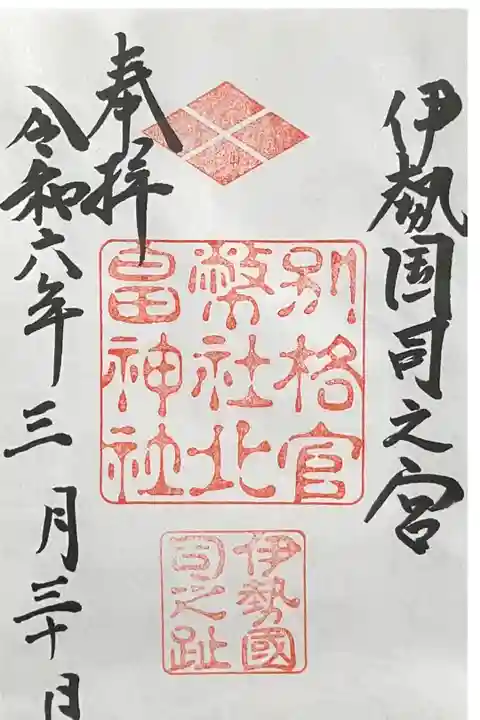 伊勢国司之宮
奉拝
令和六年三月三十日
別格官
幣社北
畠神社
伊勢國
司之趾